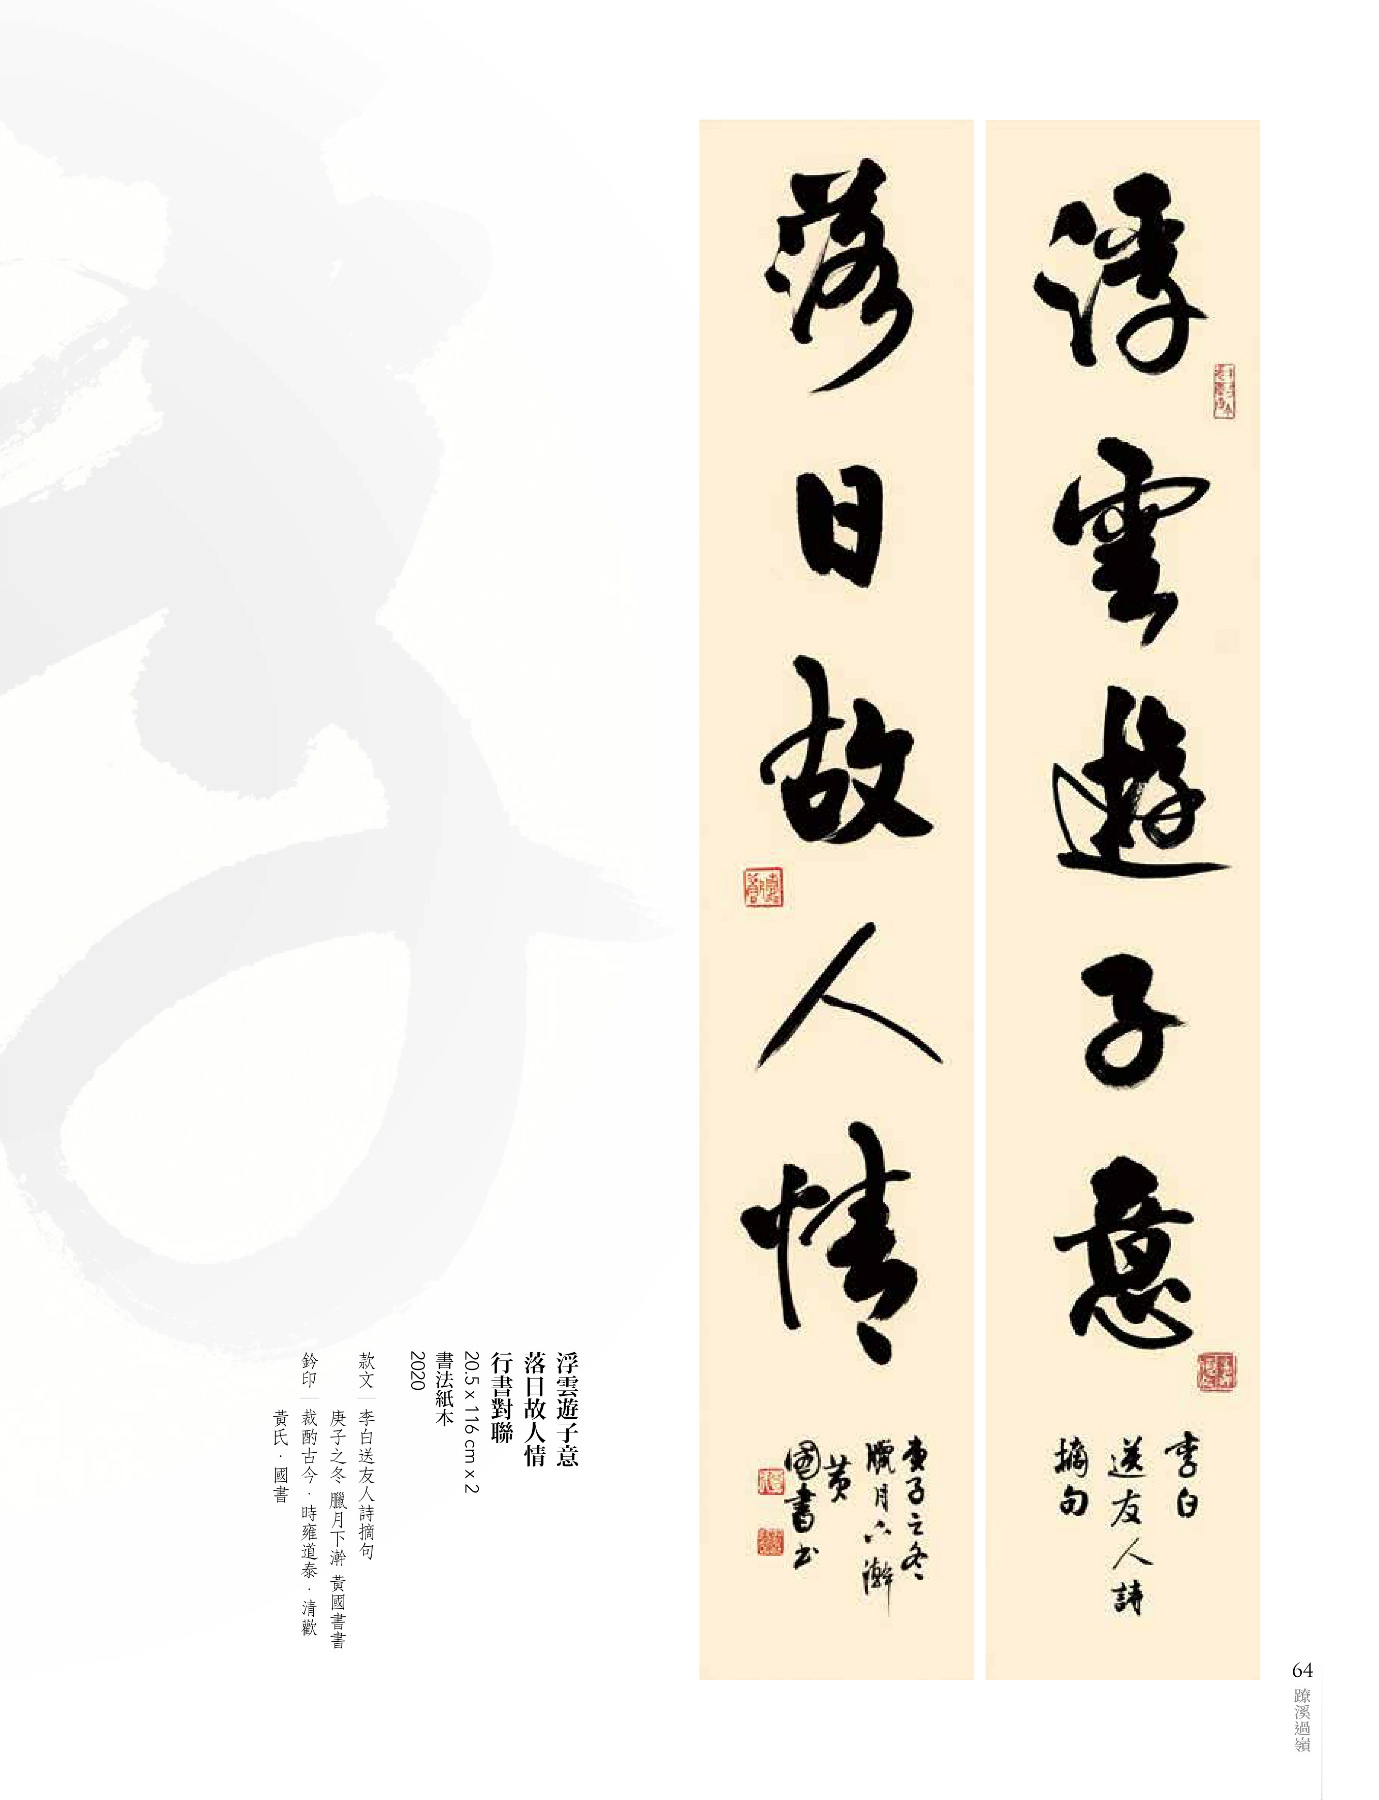 浮雲遊子意
李白
送友人詩
摘句
落日故人情
庚子之冬
臘月下澣
黃
國書書
浮雲遊子意
落日故人情
行書對聯
20.5 x 116 cm x 2
書法紙本
2020
款文｜李白送友人詩摘句
庚子之冬 臘月下澣 黃國書書
鈐印｜裁酌古今．時雍道泰．清歡
黃氏．國書
64
蹽溪過嶺